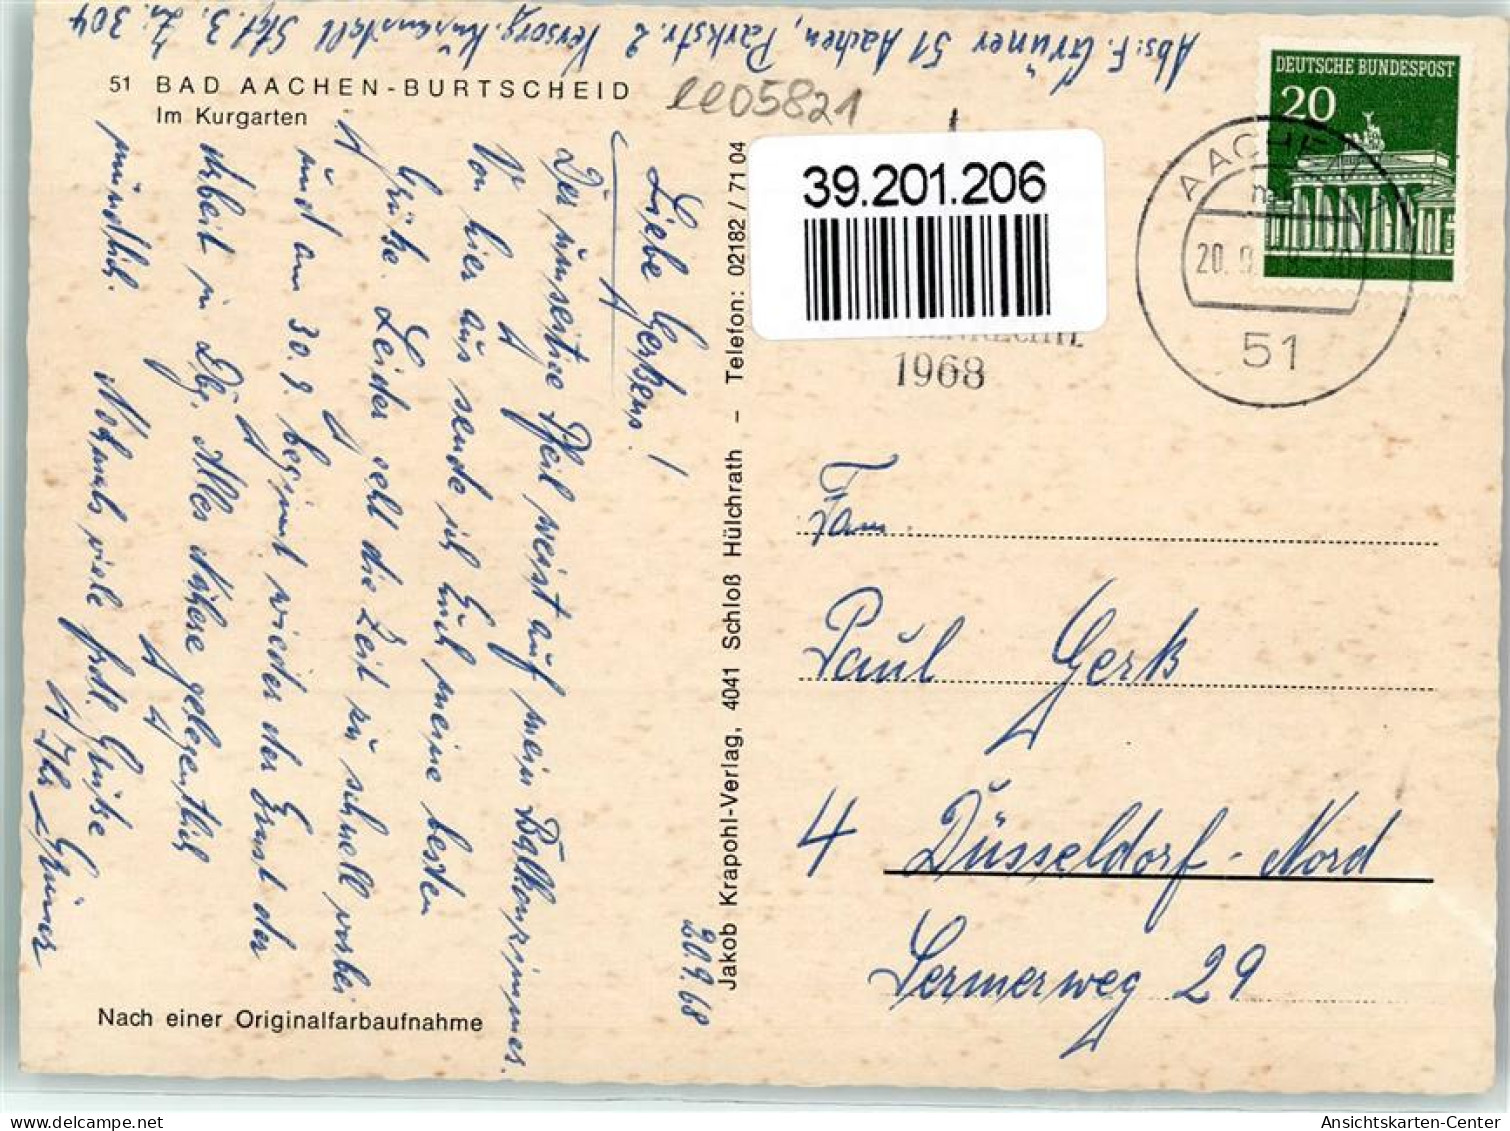 Abs: F. Grüner 51 Aachen, Parkstr. 2 Versorg. Kuranstalt Stat. 3. Zi. 304
51 BAD AACHEN-BURTSCHEID
Im Kurgarten
ee05821
DEUTSCHE BUNDESPOST
20
AACHEN
20. 9.
51
39.201.206
1968
20.9.68
Liebe Gerksens!
Der umseitige Pfeil weist auf mein Balkonzimmer.
Von hier aus sende ich Euch meine besten
Grüße. Leider geht die Zeit zu schnell vorbei
und am 30.9. beginnt wieder der Ernst der
Arbeit in Dbg. Alles Nähere gelegentlich
mündlich. Nochmals viele frdl. Grüße
Ihr Grüner
Jakob Krapohl-Verlag, 4041 Schloß Hülchrath – Telefon: 02182 / 71 04
Fam.
Paul Gerk
4 Düsseldorf-Nord
Sermerweg 29
Nach einer Originalfarbaufnahme
oldthing.net
Ansichtskarten-Center